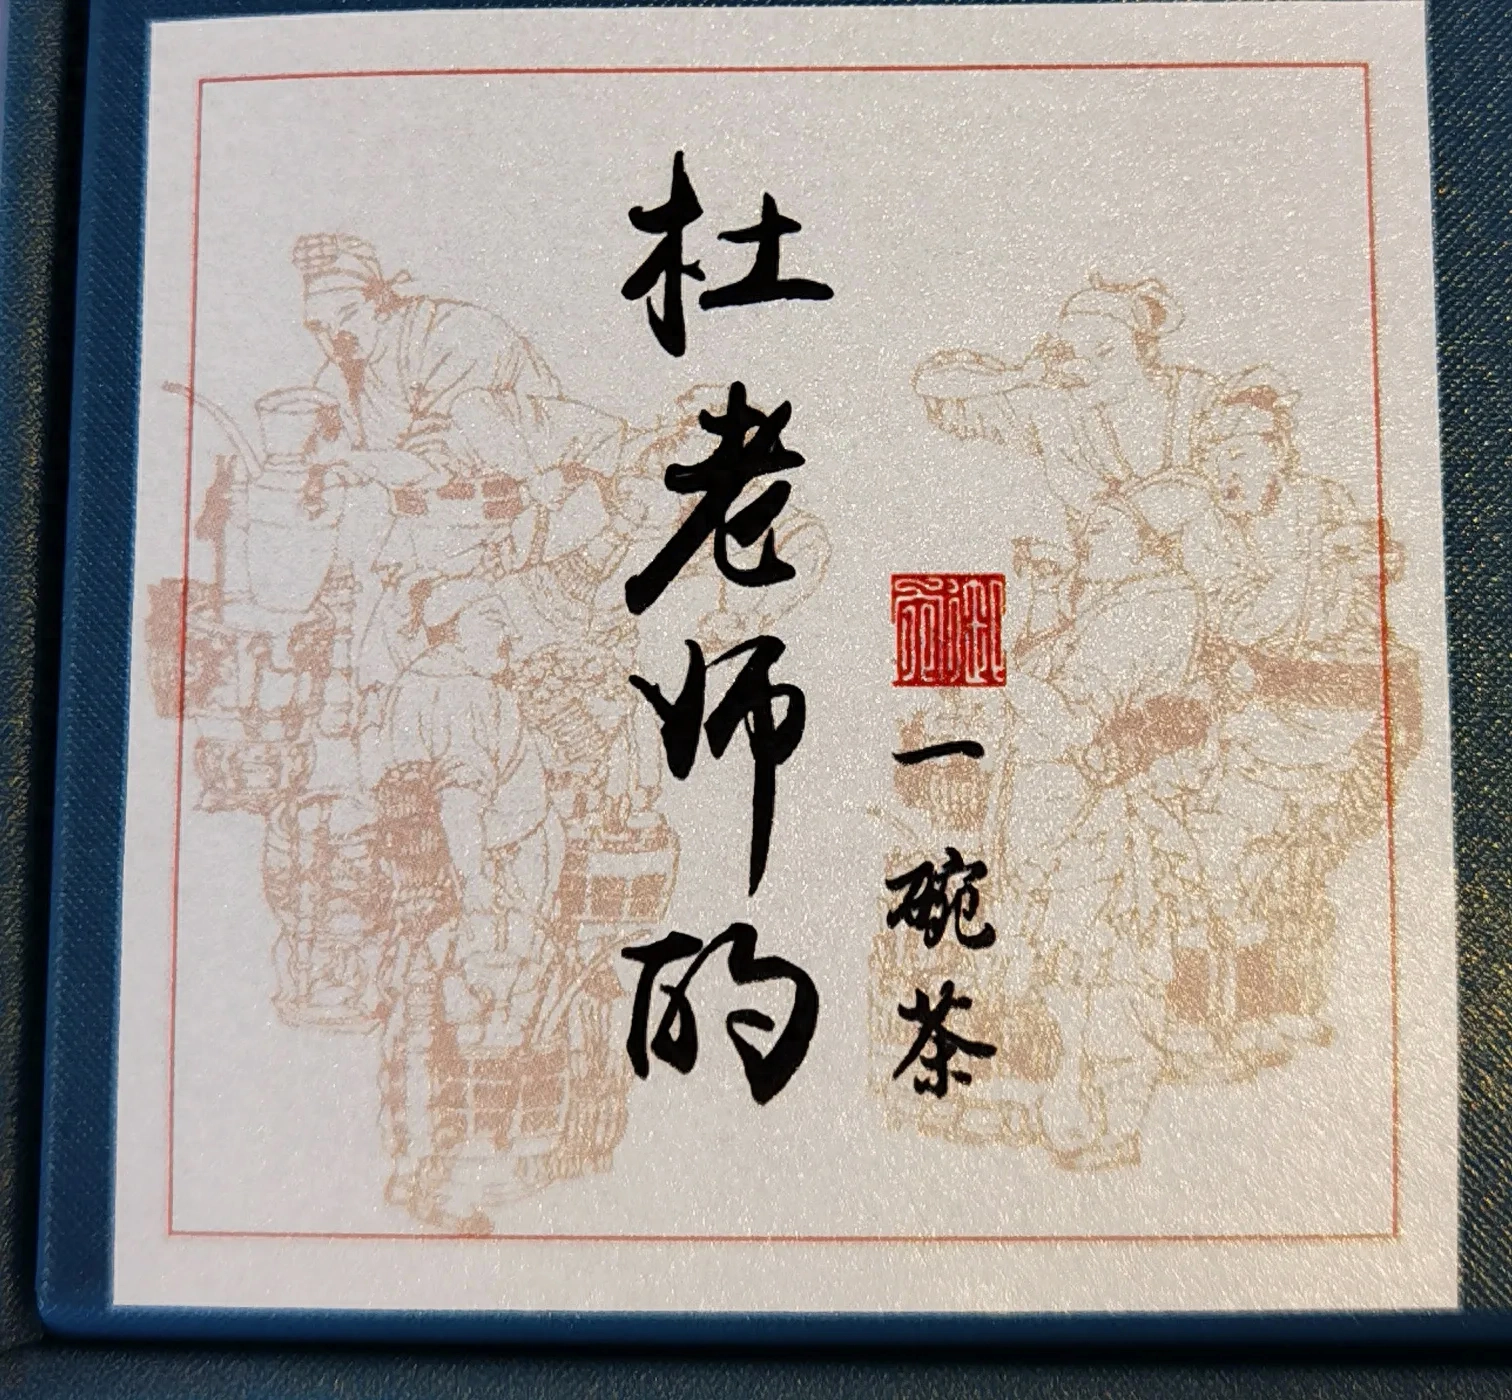 杜老师的
一碗茶